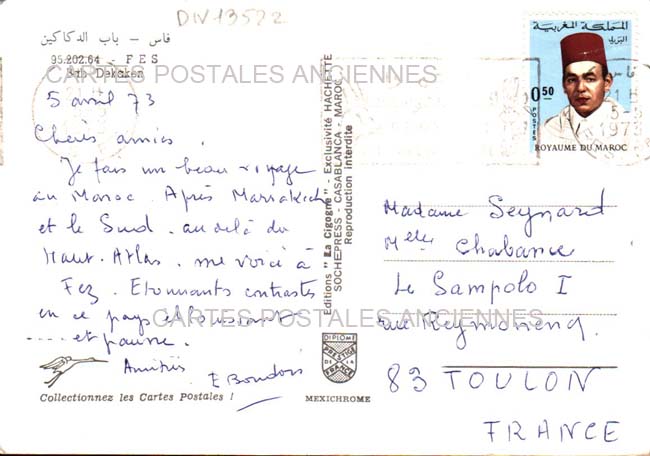 DIV13522
فاس - باب الدكاكين
95.202.64 - FES
Bab Dekaken
CARTES POSTALES ANCIENNES
5 avril 73
Chères amies.
Je fais un beau voyage
au Maroc. Après Marrakech
et le Sud. au delà du
Haut-Atlas. me voici à
Fez. Etonnants contrastes
en ce pays éblouissant
.... et pauvre.
Amitiés
E Bondois
CARTES POSTALES ANCIENNES
Collectionnez les Cartes Postales !
Editions "La Cigogne" - Exclusivité HACHETTE
SOCHEPRESS - CASABLANCA - MAROC
Reproduction interdite
DIPLOME
PRESTIGE
DE LA
FRANCE
MEXICHROME
المملكة المغربية
البريد
0,50
POSTES
ROYAUME DU MAROC
فاس
21 H
5-
1973
Madame Seynard
Melle Chabance
Le Sampolo I
rue Reymoneng.
83 TOULON
FRANCE